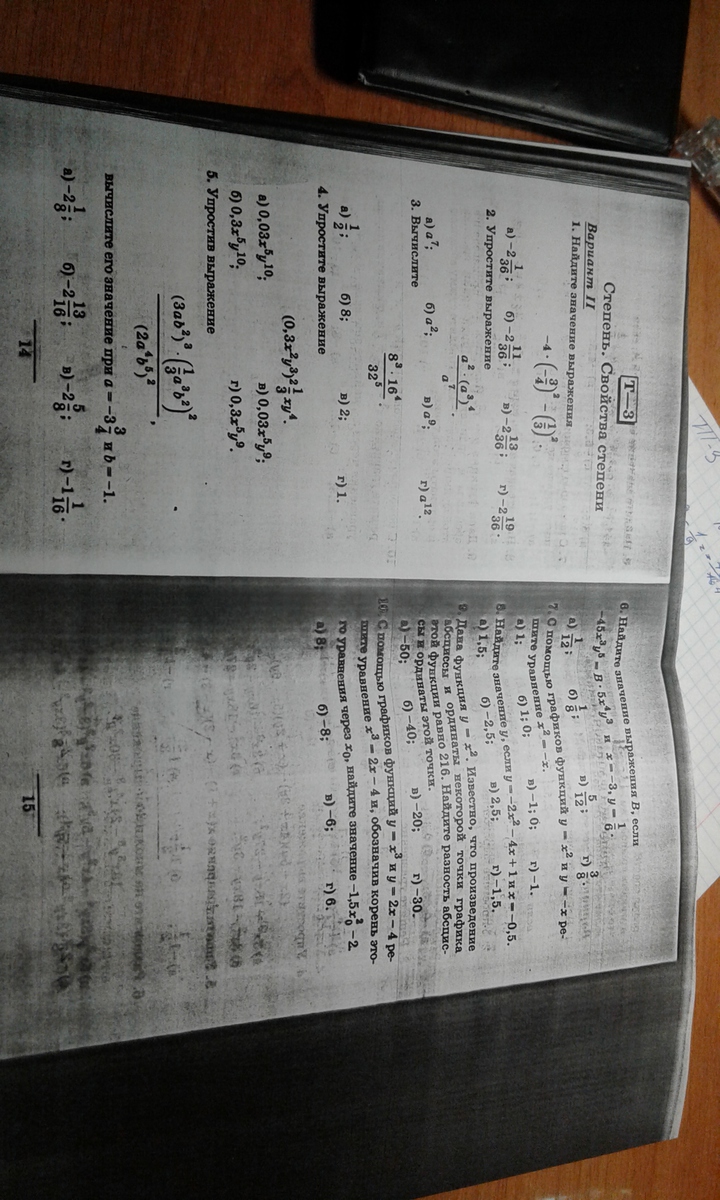 Т—3
Степень. Свойства степени
Вариант II
1. Найдите значение выражения
−4 · (−3/4)² − (1/3)².
а) −2 1/36; б) −2 11/36; в) −2 13/36; г) −2 19/36.
2. Упростите выражение
a² · (a³)⁴ / a⁷.
а) a⁷; б) a²; в) a⁹; г) a¹².
3. Вычислите
8³ · 16⁴ / 32⁵.
а) 1/2; б) 8; в) 2; г) 1.
4. Упростите выражение
(0,3x²y³)² 1/3 xy⁴.
а) 0,03x⁵y¹⁰; в) 0,03x⁵y⁹;
б) 0,3x⁵y¹⁰; г) 0,3x⁵y⁹.
5. Упростив выражение
(3ab²)³ · (1/3 a³b²)² / (2a⁴b⁵)²,
вычислите его значение при a = −3 3/4 и b = −1.
а) −2 1/8; б) −2 13/16; в) −2 5/8; г) −1 1/16.
14
6. Найдите значение выражения B, если
−45x³y⁵ = B · 5x⁴y³ и x = −3, y = 1/6.
а) 1/12; б) 1/8; в) 5/12; г) 3/8.
7. С помощью графиков функций y = x² и y = −x ре-
шите уравнение x² = −x.
а) 1; б) 1; 0; в) −1; 0; г) −1.
8. Найдите значение y, если y = −2x² − 4x + 1 и x = −0,5.
а) 1,5; б) −2,5; в) 2,5; г) −1,5.
9. Дана функция y = x². Известно, что произведение
абсциссы и ординаты некоторой точки графика
этой функции равно 216. Найдите разность абсцис-
сы и ординаты этой точки.
а) −50; б) −40; в) −20; г) −30.
10. С помощью графиков функций y = x³ и y = 2x − 4 ре-
шите уравнение x³ = 2x − 4 и, обозначив корень это-
го уравнения через x₀, найдите значение −1,5x₀³ − 2.
а) 8; б) −8; в) −6; г) 6.
15